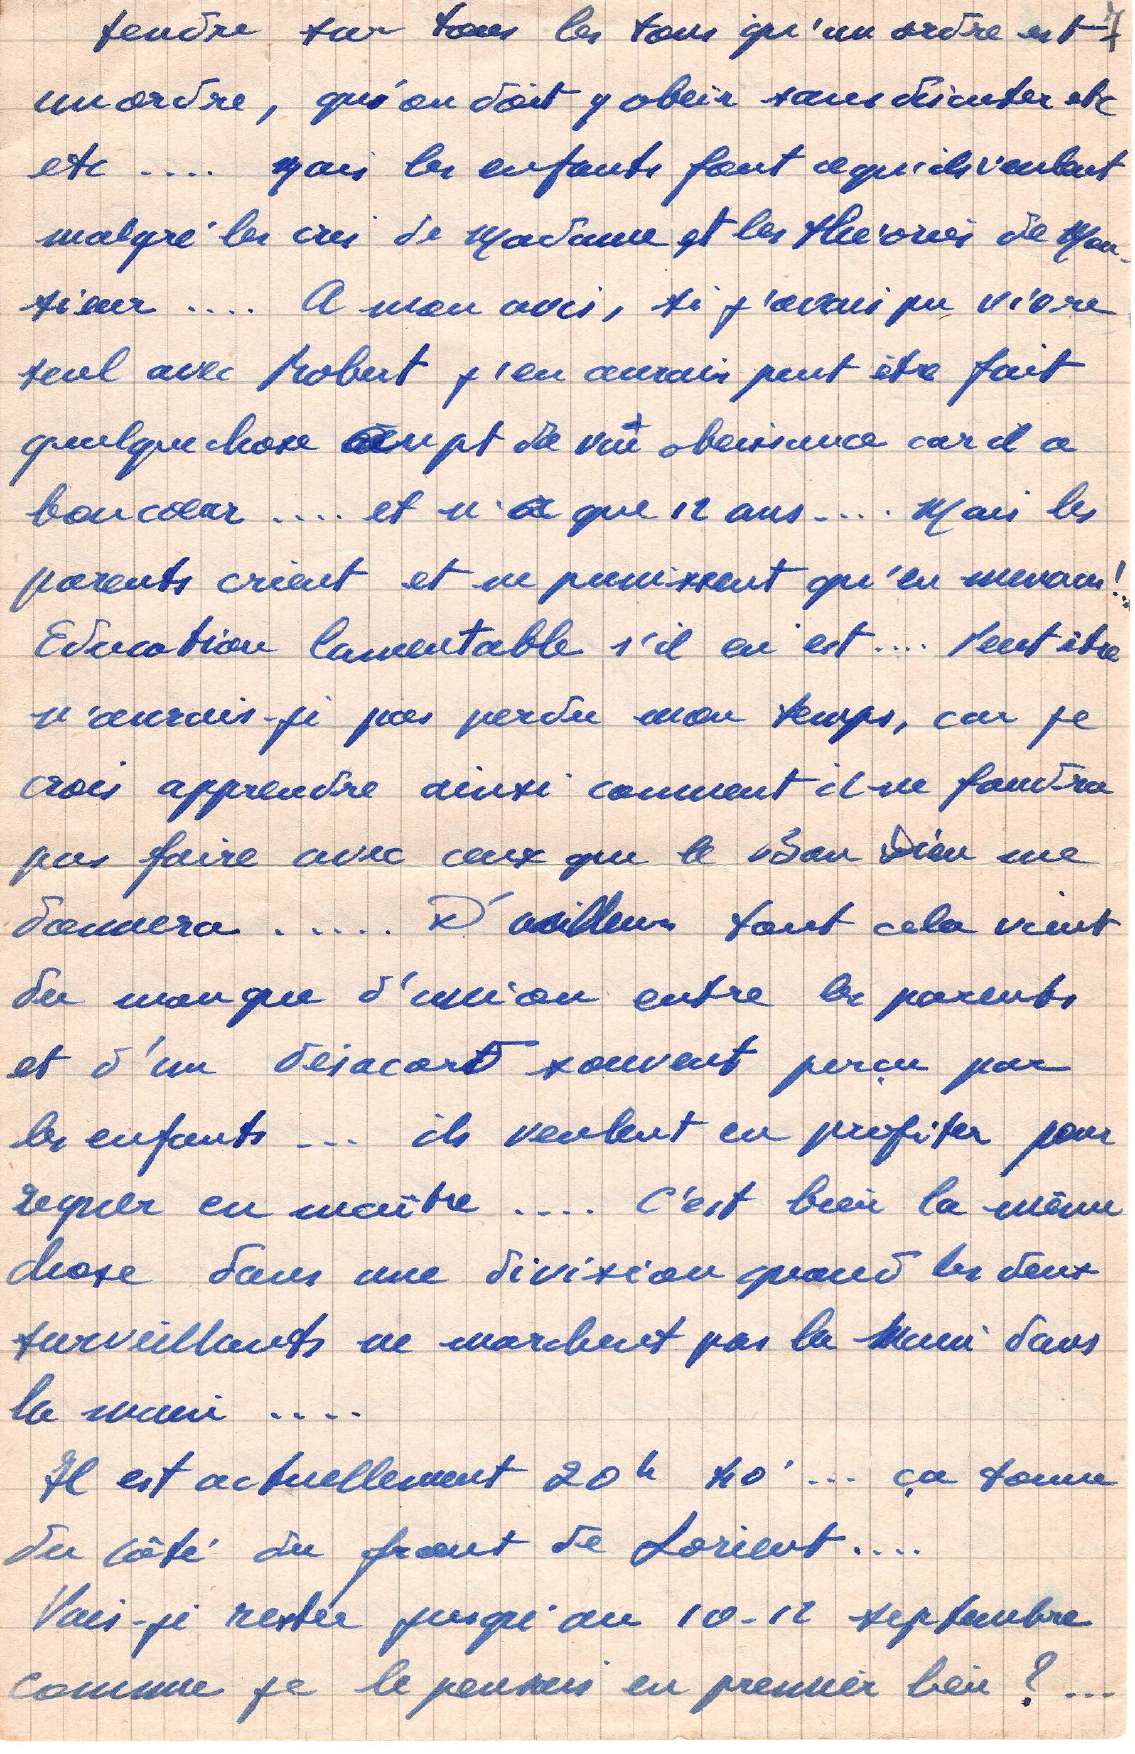 tendre sur tous les tons qu'un ordre est 7
un ordre, qu'on doit y obeir sans discuter etc
etc .... Mais les enfants font ce qu'ils veulent
malgré les cris de Madame et les théories de Mon-
sieur .... A mon avis, si j'avais pu vivre
seul avec Robert j'en aurais peut être fait
quelque chose au pt de vue obeissance car il a
bon coeur .... et n'a que 12 ans .... Mais les
parents crient et ne punissent qu'en menaces!..
Education lamentable s'il en est .... Peut être
n'aurais-je pas perdu mon temps, car je
crois apprendre ainsi comment il ne faudra
pas faire avec ceux que le Bon Dieu me
donnera ..... D'ailleurs tout cela vient
du manque d'union entre les parents
et d'un désacord souvent perçu par
les enfants ... ils veulent en profiter pour
regner en maître .... C'est bien la même
chose dans une division quand les deux
surveillants ne marchent pas la main dans
la main ....
Il est actuellement 20h ... ça tonne
du côté du front de Lorient ....
Vais-je rester jusqu'au 10-12 septembre
comme je le pensais en premier lieu ? ...